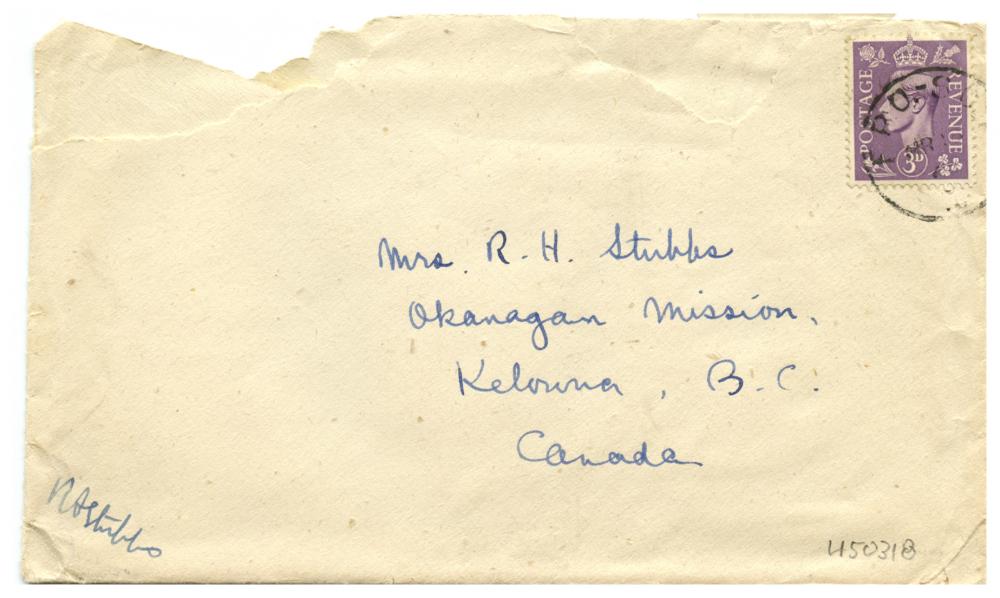 POSTAGE REVENUE
3D
Mrs. R. H. Stubbs
Okanagan Mission,
Kelowna, B.C.
Canada
RHStubbs
450318